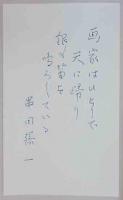 画家はいそいで
天に帰り
銀の笛を
鳴らしている
串田孫一